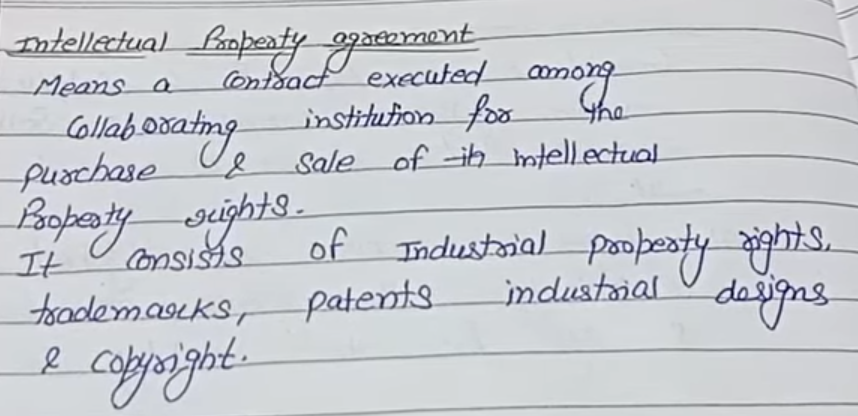 Intellectual Property agreement
Means a Contract executed among
Collaborating institution for the
purchase & sale of its intellectual
Property rights.
It consists of Industrial property rights,
trademarks, patents industrial designs
& copyright.